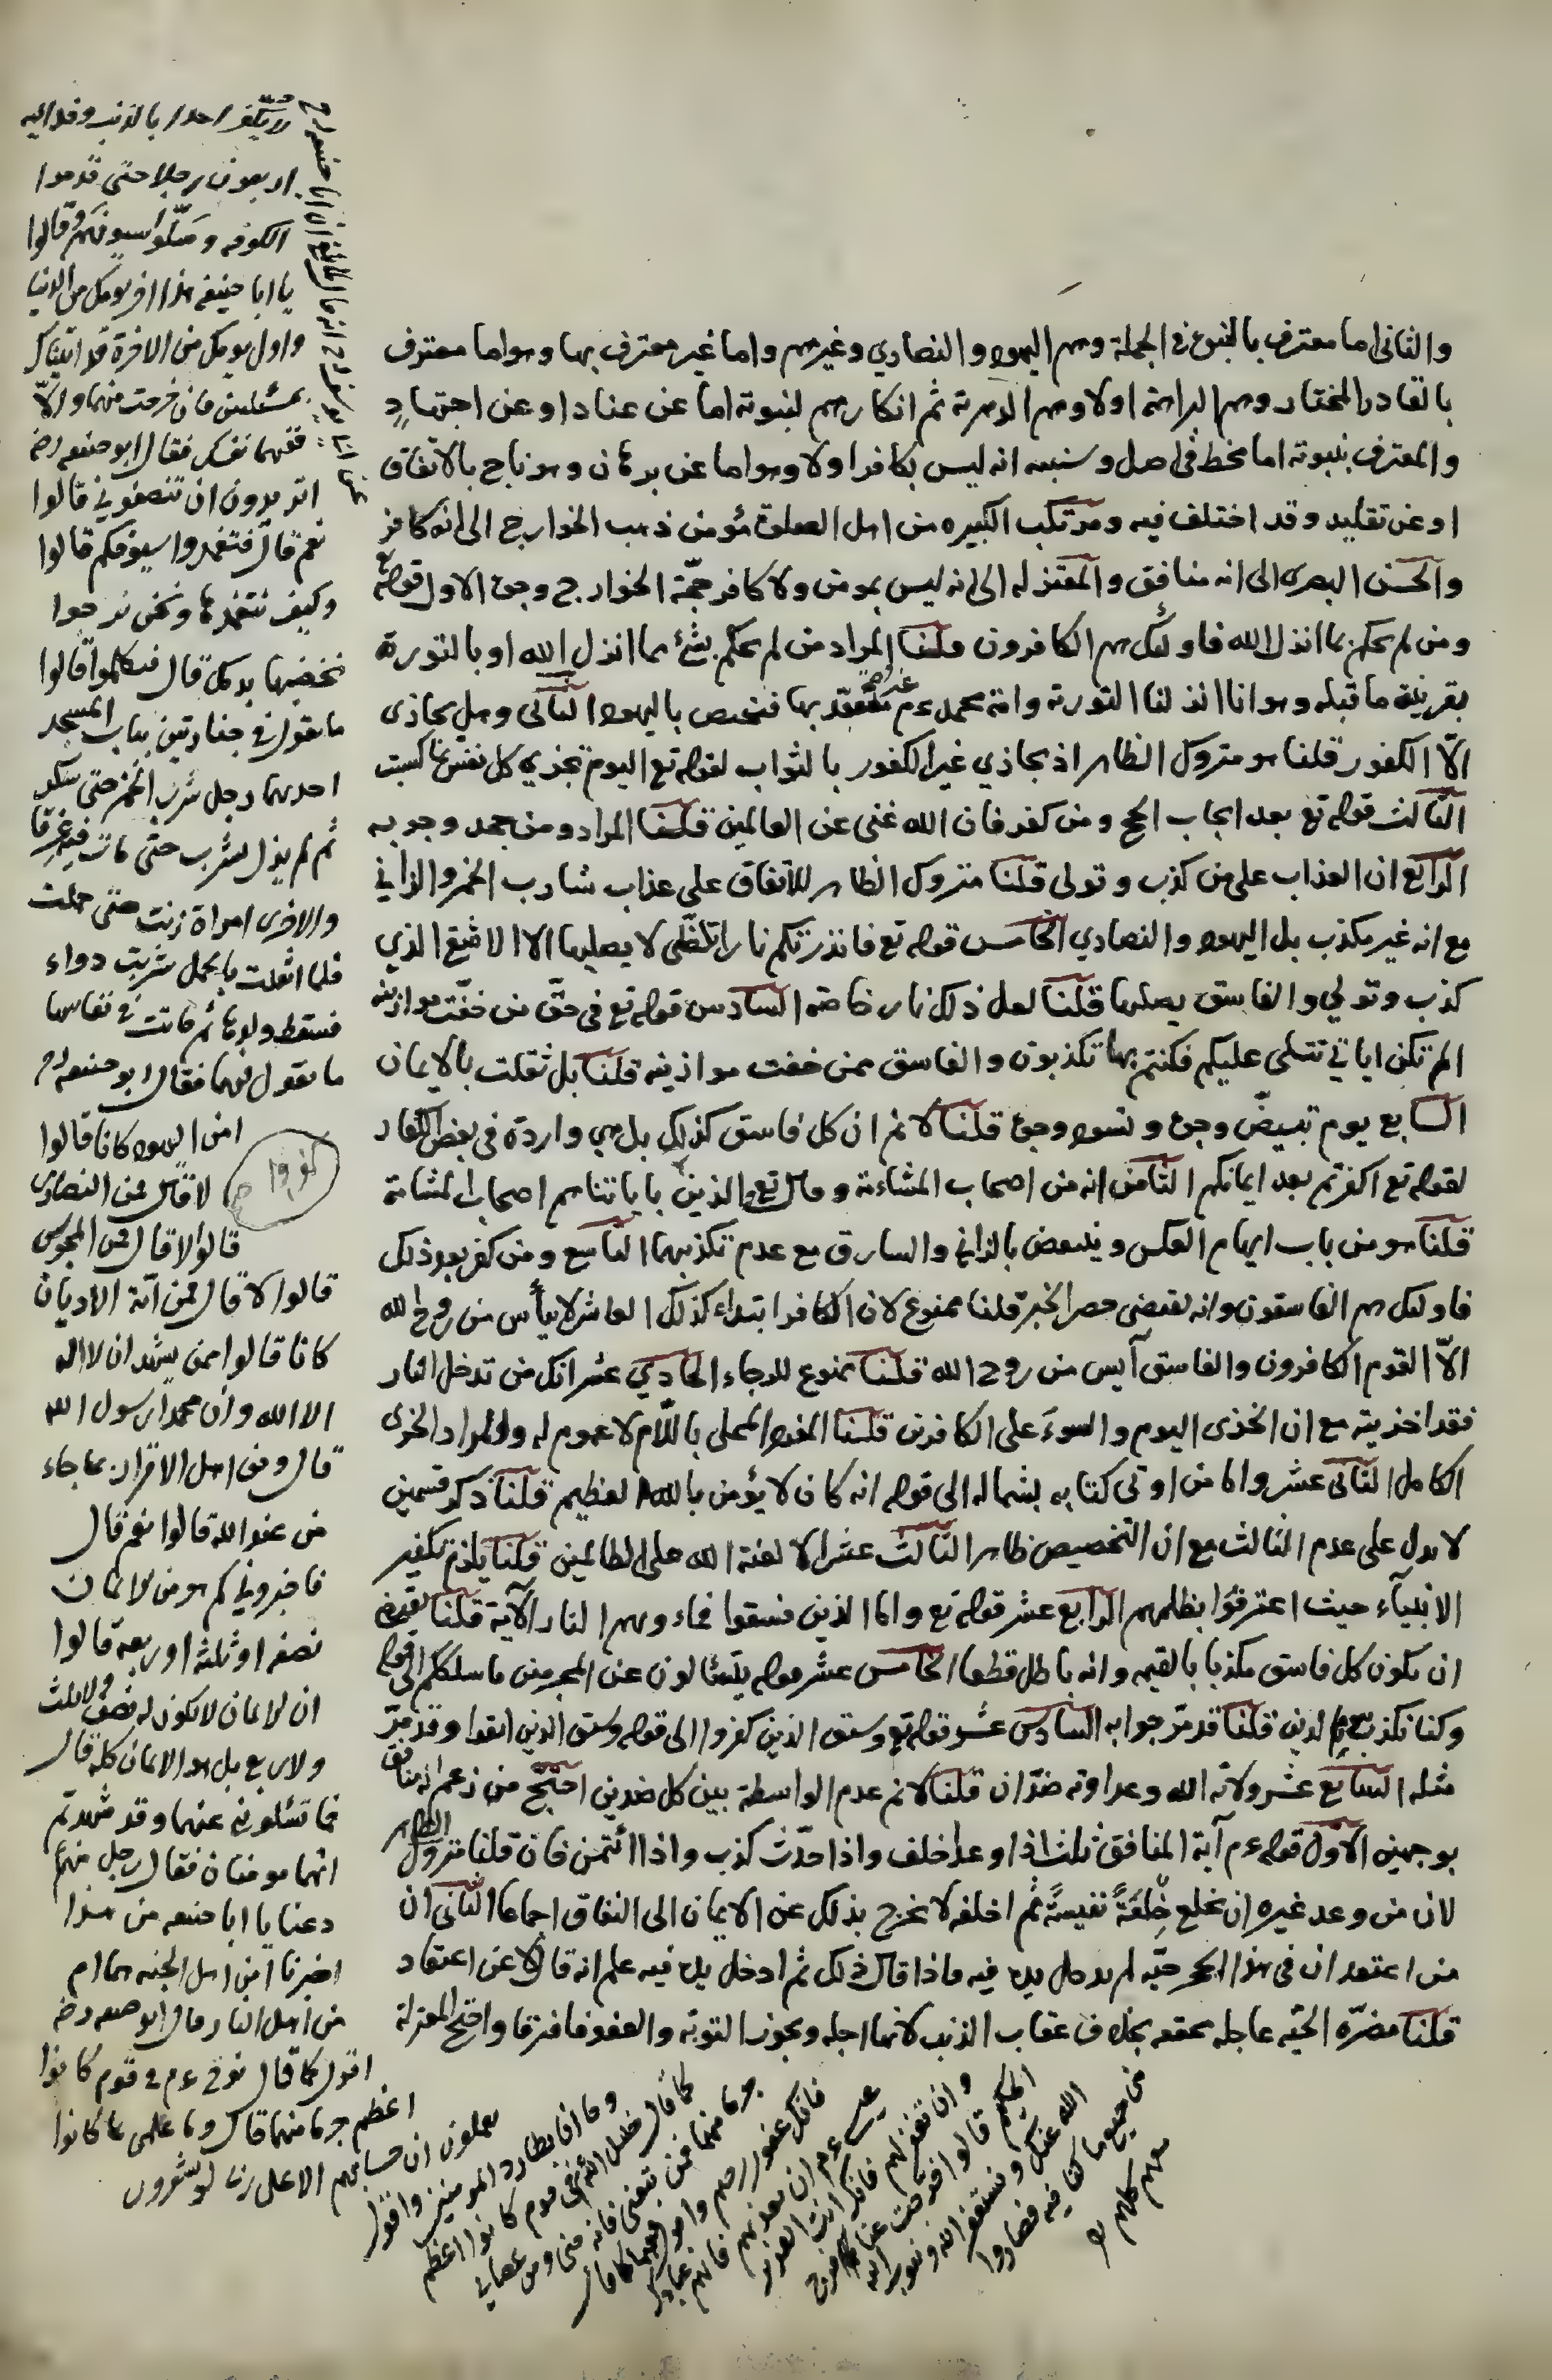 والثانى اما معترف بالنبوة فى الجملة وهم اليهود والنصارى وغيرهم واما غير معترف بها وهو اما معترف
بالقادر المختار وهم البراهمة اولا وهم الدهرية ثم انكارهم لنبوته اما عن عناد او عن اجتهادٍ
والمعترف بنبوته اما مخطئ فى اصل وسنبين انه ليس بكافر او لا وهو اما عن برهان وهو ناج بالاتفاق
او عن تقليد وقد اختلف فيه ومرتكب الكبيره من اهل الصلوة مؤمن ذهب الخوارج الى انه كافر
والحسن البصرى الى انه منافق والمعتزله الى انه ليس بمومن ولا كافر حجّة الخوارج وجوه الاول قوله تع
ومن لم يحكم بما انزل الله فاولئك هم الكافرون قلنا المراد من لم يحكم بشئ مما انزل الله او بالتورية
بقرينة ما قبله وهو انا انزلنا التورية وامة محمد عم غير متعبد بها فتختص باليهود الثانى وهل يجازى
الّا الكفور قلنا هو متروك الظاهر اذ يجازي غير الكفور بالثواب لقوله تع اليوم تجزي كل نفس بما كسبت
الثالث قوله تع بعد ايجاب الحج ومن كفر فان الله غنى عن العالمين قلنا المراد ومن جحد وجوبه
الرابع ان العذاب على من كذب وتولى قلنا متروك الظاهر للاتفاق على عذاب شارب الخمر والزاني
مع انه غير مكذب بل اليهود والنصاري الخامس قوله تع فانذرتكم نارا تلظّى لا يصليها الا الاشقى الذي
كذب وتولي والفاسق يصليها قلنا لعل ذلك نار خاصة السادس قوله تع فى حقّ من خفّت موازينه
الم تكن اياتي تتلى عليكم فكنتم بها تكذبون والفاسق ممن خفت موازينه قلنا بل ثقلت بالايمان
السابع يوم تبيضّ وجوه وتسود وجوه قلنا لا نم ان كل فاسق كذلك بل هى واردة فى بعض الكفار
لقوله تع اكفرتم بعد ايمانكم الثامن انه من اصحاب المشاءمة وقال تع والذين كفروا باياتنا هم اصحاب المشامة
قلنا هو من باب ايهام العكس وينتقض بالزاني والسارق مع عدم تكذيبهما التاسع ومن كفر بعد ذلك
فاولئك هم الفاسقون وانه يقتضى حصر الخبر قلنا ممنوع لان الكافر ابتداء كذلك العاشر لا ييأس من روح الله
الّا القوم الكافرون والفاسق آيس من روح الله قلنا ممنوع للرجاء الحادي عشر انك من تدخل النار
فقد اخزيته مع ان الخزى اليوم والسوء على الكافرين قلنا المفرد المحلى باللّام لا عموم له والمراد الخزى
الكامل الثانى عشر واما من اوتى كتابه بشماله الى قوله انه كان لا يؤمن بالله العظيم قلنا ذكر قسمين
لا يدل على عدم الثالث مع ان التخصيص ظاهر الثالث عشر الا لعنة الله على الظالمين قلنا يلزم تكفير
الانبيآء حيث اعترفوا بظلمهم الرابع عشر قوله تع واما الذين فسقوا فماءويهم النار الآية قلنا يقتضى
ان يكون كل فاسق مكذبا بالقيمه وانه باطل قطعا الخامس عشر قوله يتسائلون عن المجرمين ما سلككم الى قوله
وكنا نكذب بيوم الدين قلنا قد مرّ جوابه السادس عشر قوله تع وسيق الذين كفروا الى قوله وسيق الذين اتقوا وقد مرّ
مثله السابع عشر ولاية الله وعداوته ضدّان قلنا لا نم عدم الواسطة بين كل ضدين احتجّ من زعم انه منافق
بوجهين الاول قوله عم آية المنافق ثلث اذا وعد اخلف واذا حدّث كذب واذا ائتمن خان قلنا متروك الظاهر
لان من وعد غيره ان يخلع خِلعَةً نفيسةً ثم اخلفه لا يخرج بذلك عن الايمان الى النفاق اجماعا الثانى ان
من اعتقد ان فى هذا الجحر حيّه لم يدخل يده فيه فاذا قال ذلك ثم ادخل يده فيه علم انه قاله لا عن اعتقاد
قلنا مضرّه الحيّه عاجله محققه بخلاف عقاب الذنب لانها اجله ويجوز التوبة والعفو فافترقا واحتج المعتزلة
احدا بالذنب وفد اليه
اربعون رجلا حتى قدموا
الكوفه وسلّوا سيوفهم وقالوا
يا ابا حنيفه هذا اخر يومك من الدنيا
واول يومك من الاخرة قد اتيناك
بمسئلتين فان خرجت منهما والّا
فقال ابو حنيفه رضه
اتريدون ان تنصفوني قالوا
نعم قال فتغمدوا سيوفكم قالوا
وكيف نغمدها ونحن نرجوا
نخضبها بدمك قال فتكلموا قالوا
ما تقول فى جنازتين بباب المسجد
احديهما رجل شرب الخمر حتى سكر
ثم لم يزل يشرب حتى مات فيه غرقا
والاخرى امراة زنت حتى حملت
فلما اثقلت بالحمل شربت دواء
فسقط ولدها ثم ماتت فى نفاسها
ما تقول فيهما فقال ابو حنيفه
امن اليهود كانا قالوا
كفروا
لا قال فمن النصارى
قالوا لا قال فمن المجوس
قالوا لا قال فمن اية الاديان
كانا قالوا ممن يشهد ان لا اله
الا الله وان محمدا رسول الله
قال ومن اهل الاقرار بما جاء
من عند الله قالوا نعم قال
فاخبروني كم هو من الايمان
نصفه او ثلثه او ربعه قالوا
ان الايمان لا يكون له نصف ولا ثلث
ولا ربع بل هو الايمان كله قال
فما تسئلوني عنهما وقد شهدتم
انهما مومنان فقال رجل منهم
دعنا يا ابا حنيفه من هذا
اخبرنا امن اهل الجنه هما ام
من اهل النار فقال ابو حنيفه رضه
اقول كما قال نوح عم فى قوم كانوا
اعظم جرما منهما قال وما علمى بما كانوا
يعملون ان حسابهم الا على ربى لو تشعرون
وما انا بطارد المومنين واقول
كما قال خليل الله فى قوم كانوا اعظم
جرما منهما فمن تبعنى فانه منى ومن عصانى
فانك غفور رحيم واقول فيهما كما قال
عيسى عم ان تعذبهم فانهم عبادك
وان تغفر لهم فانك انت العزيز
الحكيم قالوا فرجت عنا
الله عنك ونستغفر الله ونتوب اليه
من جميع ما كنا فيه فصاروا